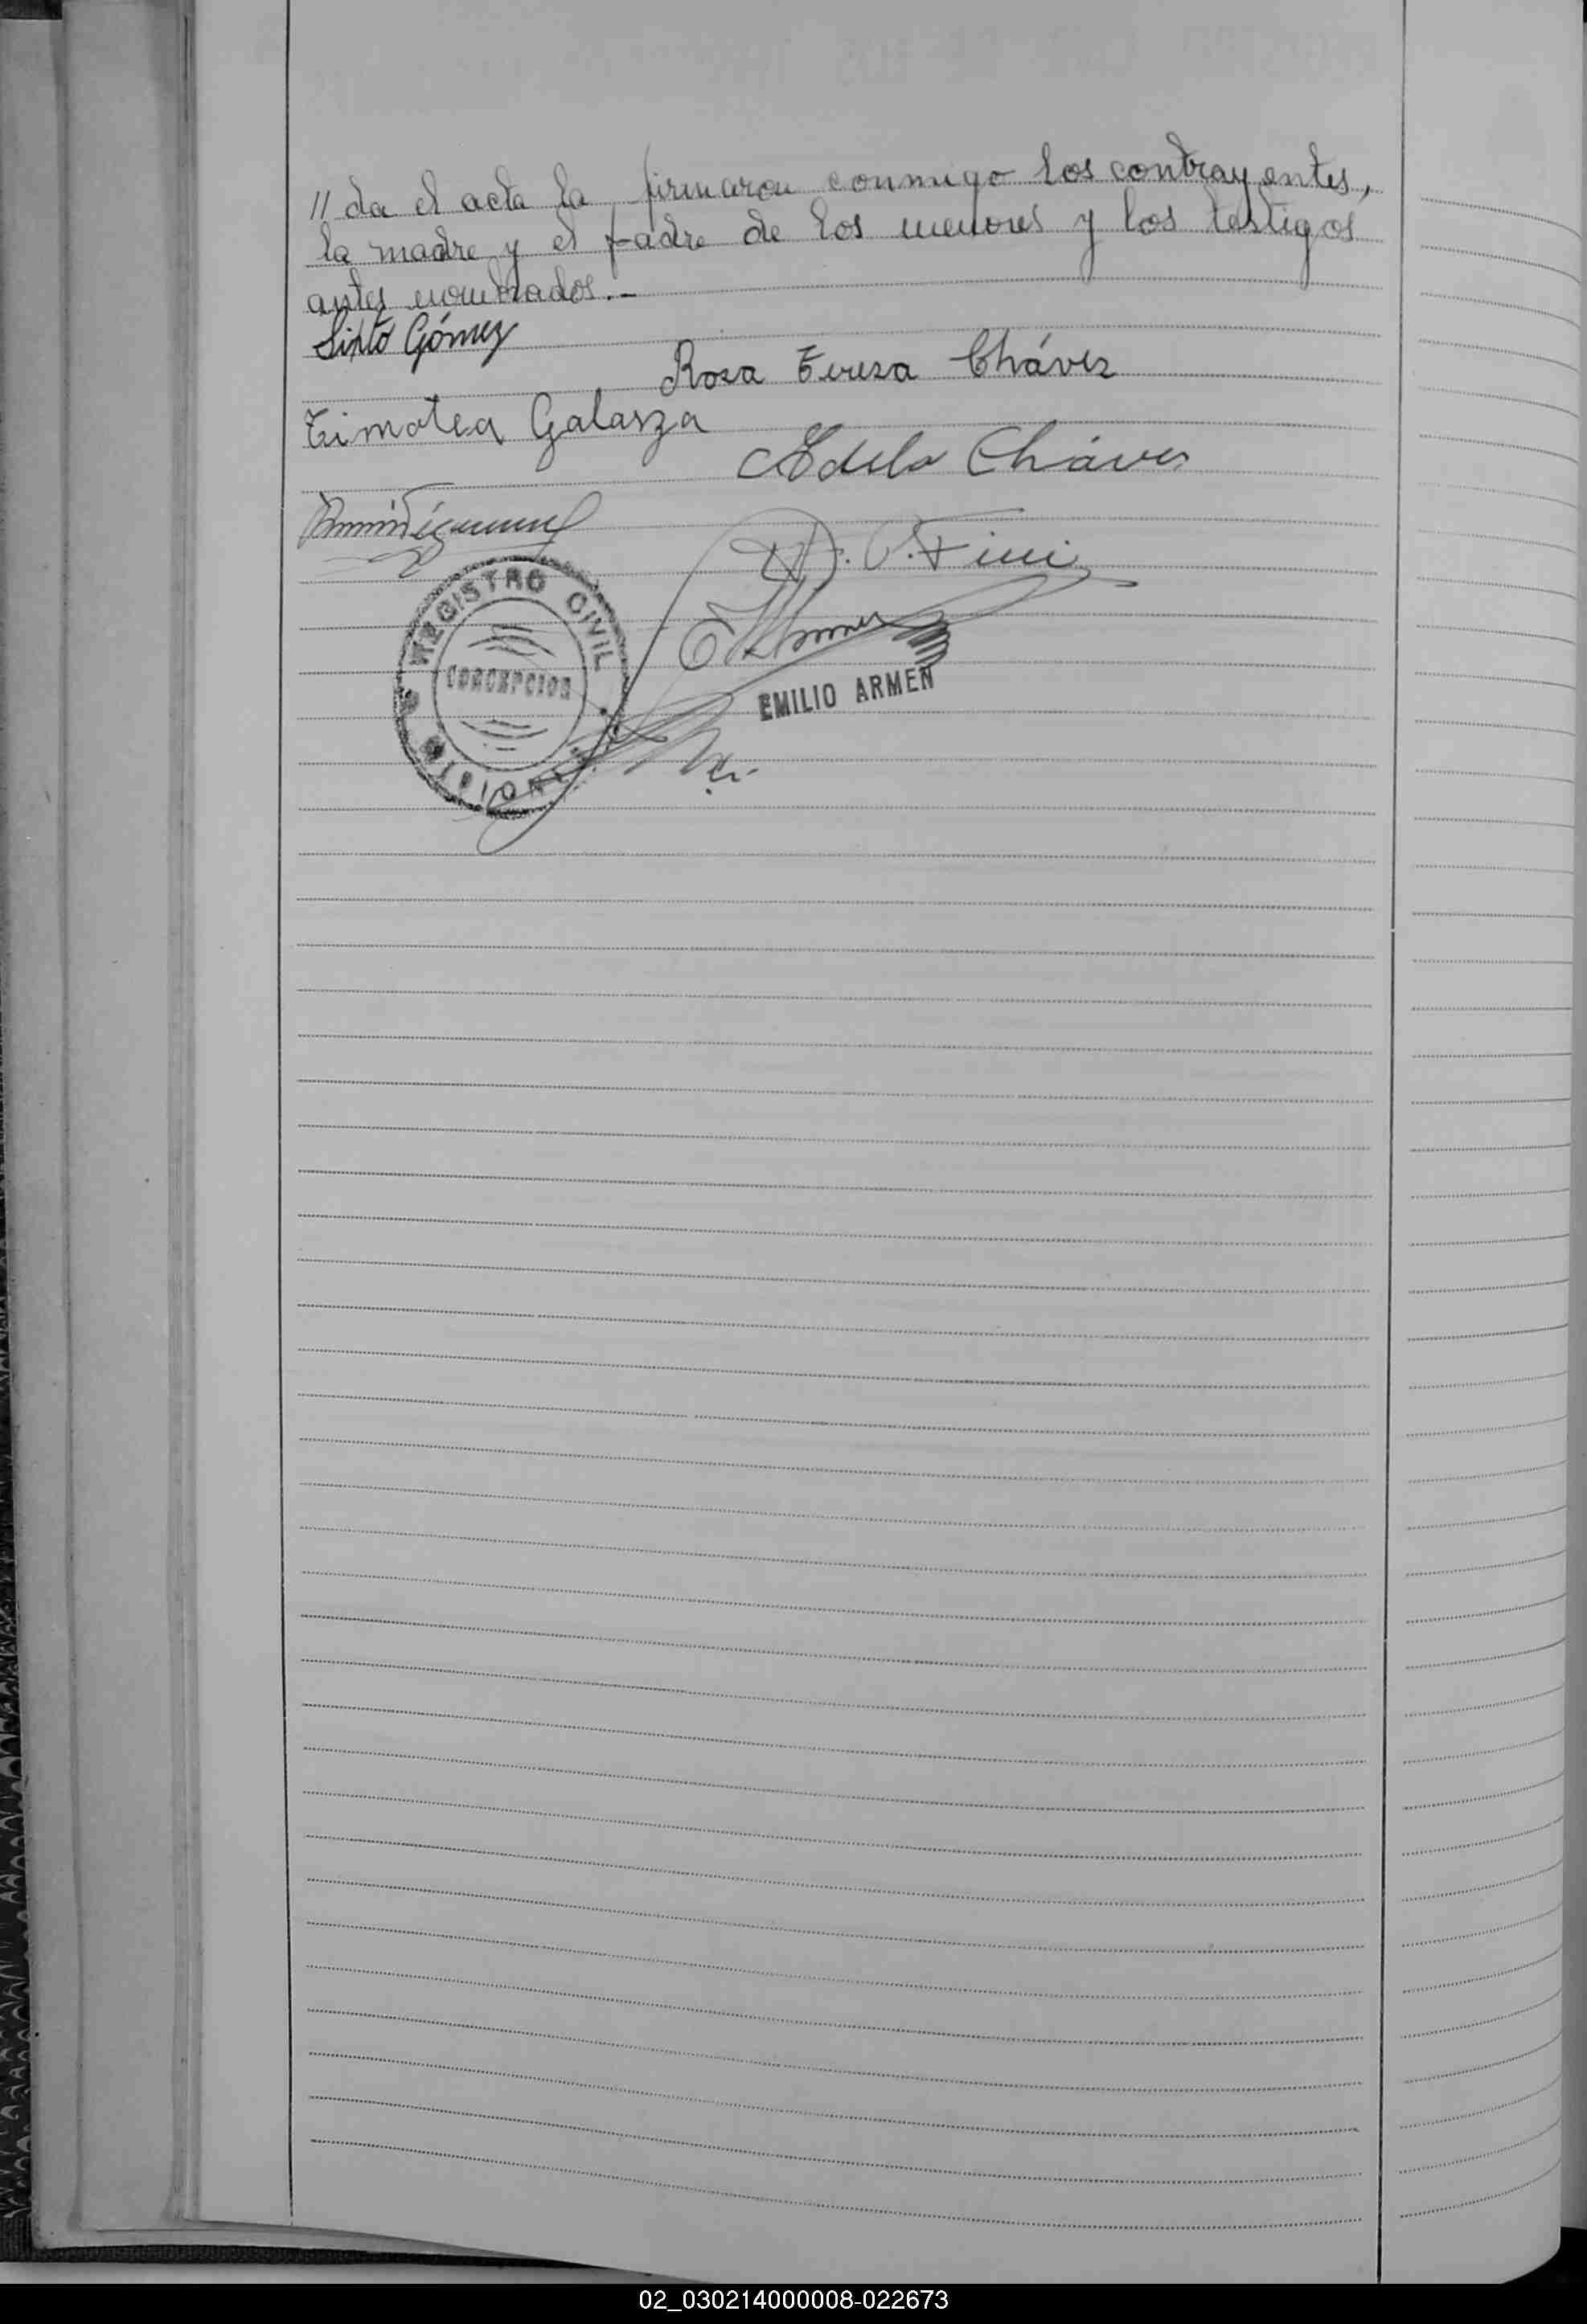 // da el acta la firmaron conmigo los contrayentes,
la madre y el padre de los menores y los testigos
antes nombrados.-
Sixto Gómez
Rosa Teresa Cháves
Timotea Galarza
Adela Cháves
REGISTRO CIVIL
CONCEPCION
MISIONES
EMILIO ARMEN
02_030214000008-022673